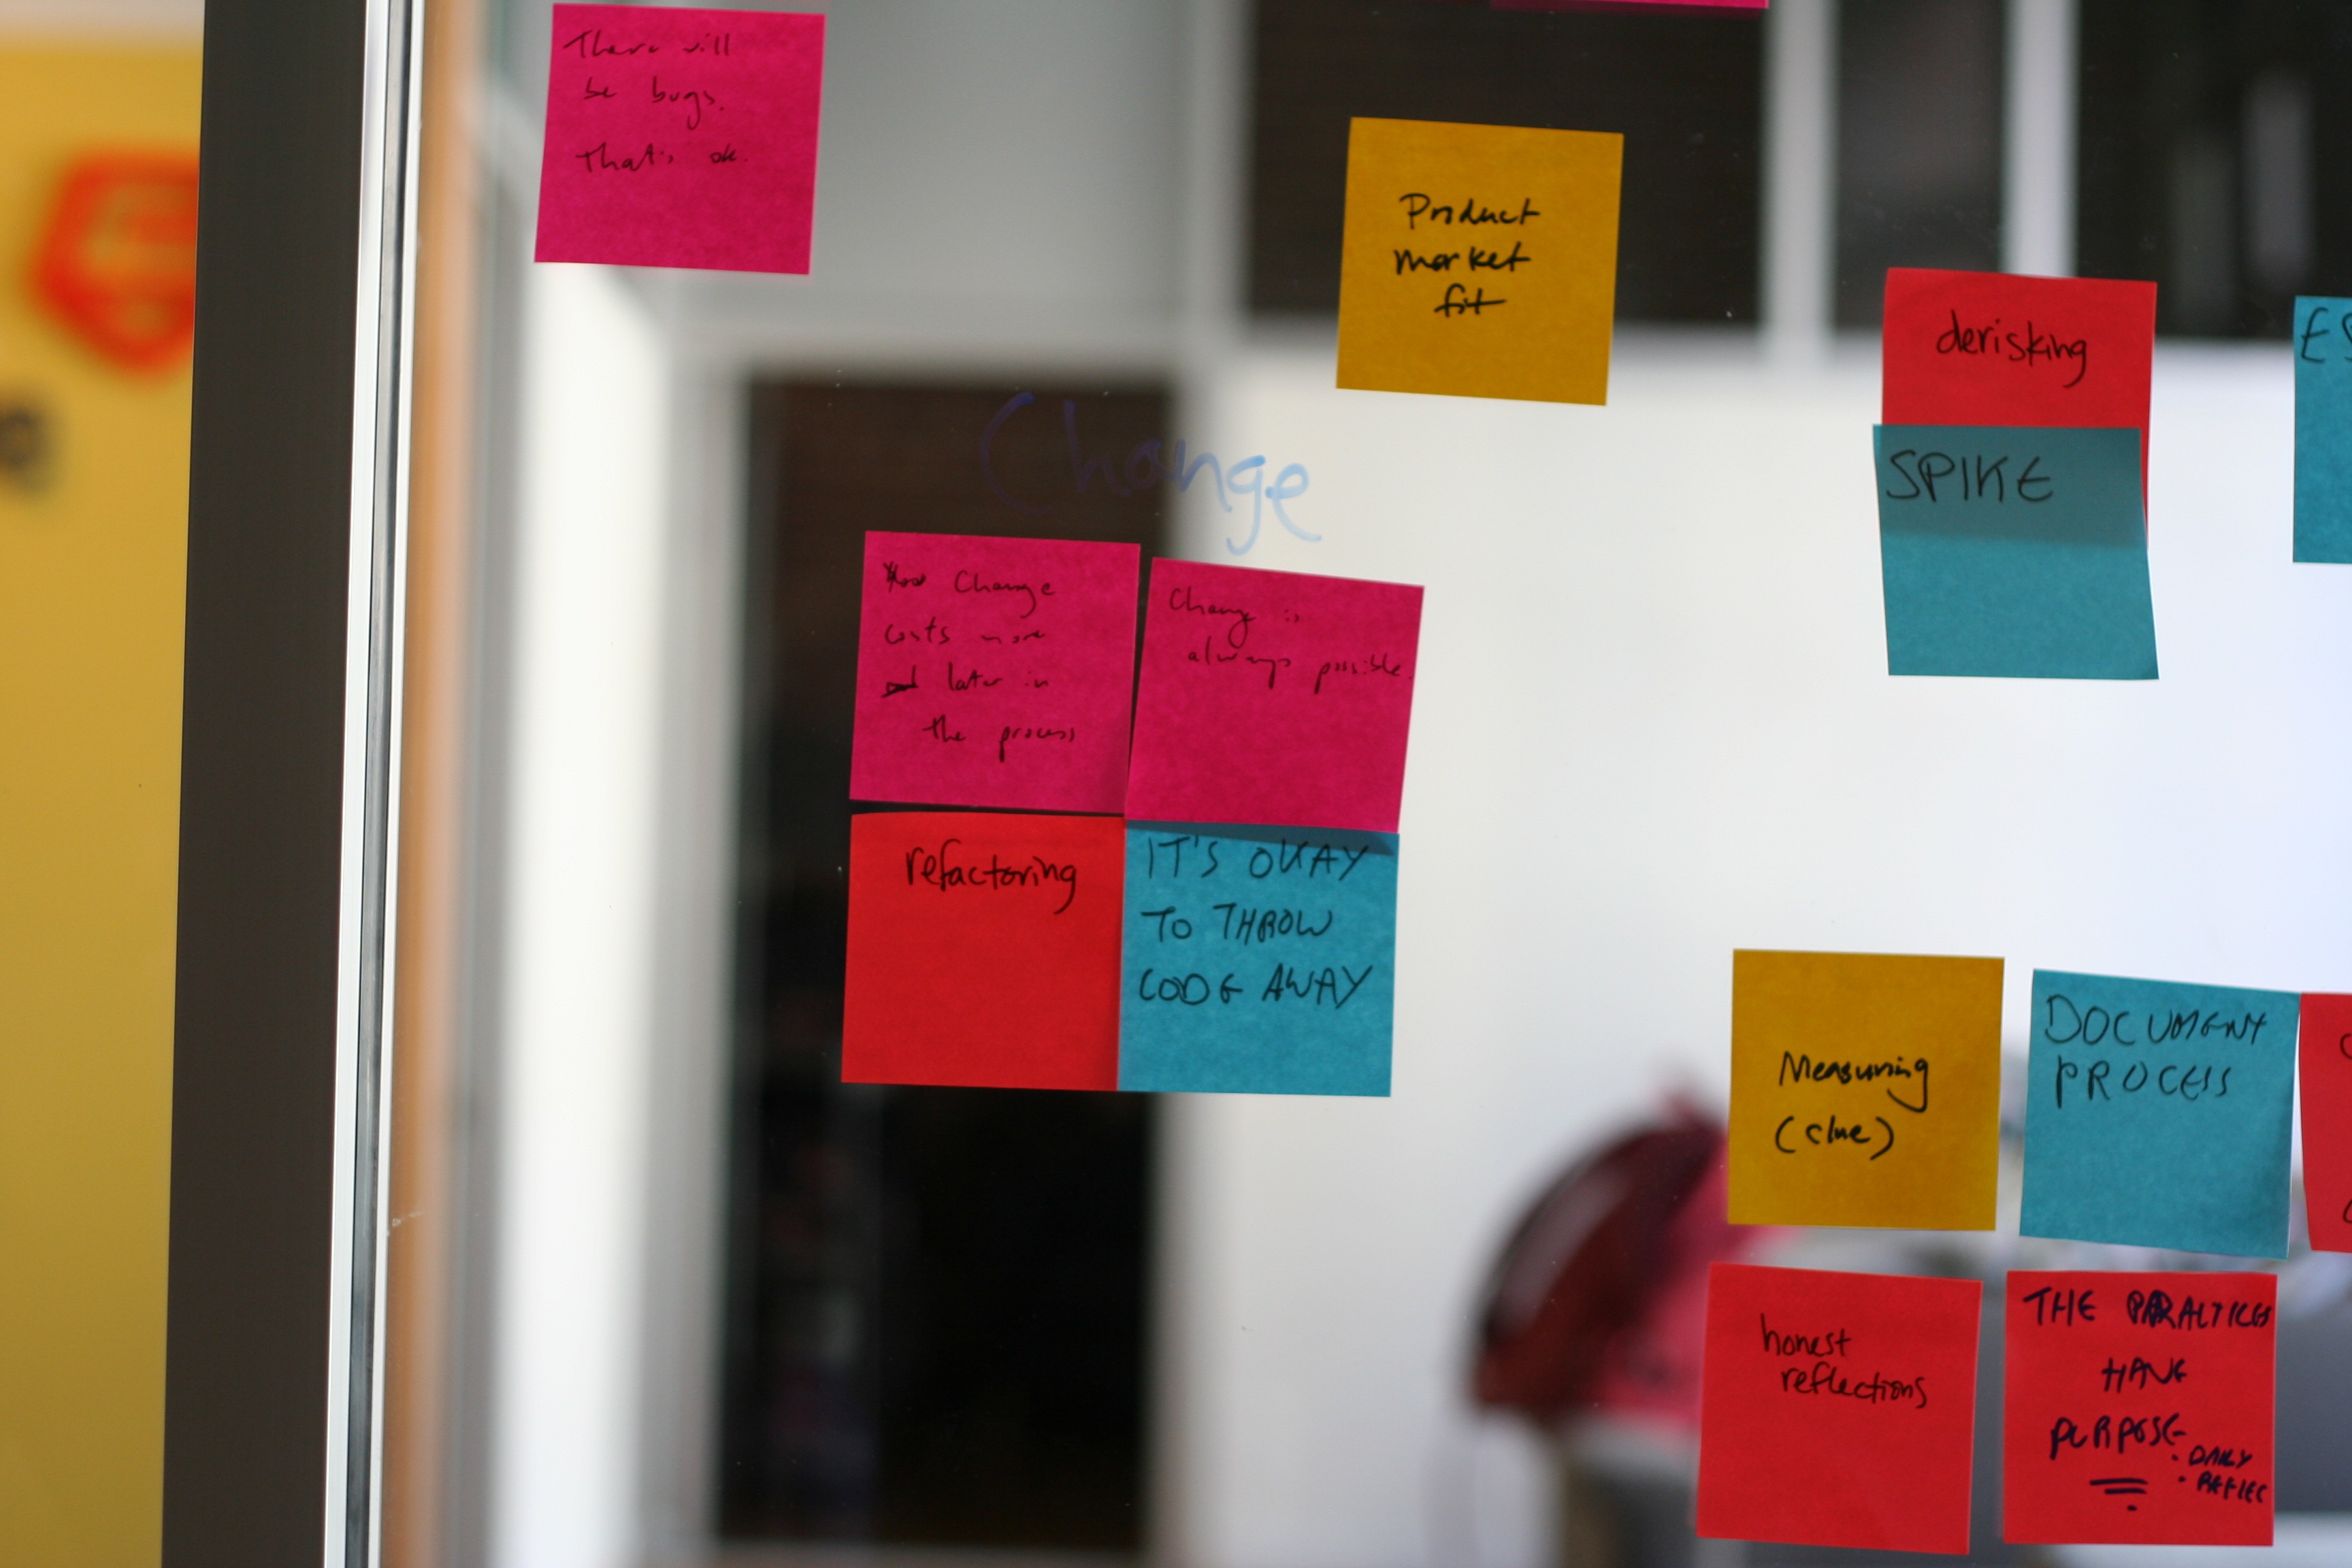 There will
be bugs.
That's ok.
Product
market
fit
derisking
SPIKE
ES
Change
Change
costs more
later in
the process
Change is
always possible.
refactoring
IT'S OKAY
TO THROW
CODE AWAY
Measuring
(clue)
DOCUMENT
PROCESS
honest
reflections
THE PRACTICES
HAVE
PURPOSE
• DAILY
• REFLEC